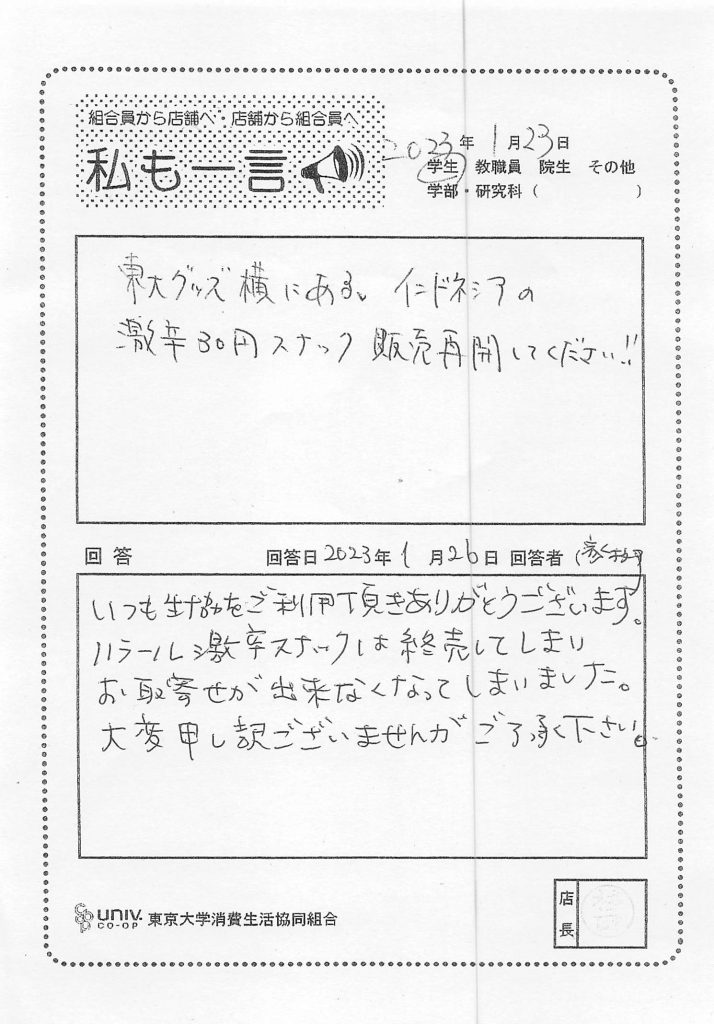 組合員から店舗へ・店舗から組合員へ
私も一言
2023年 1月23日
学生 教職員 院生 その他
学部・研究科( )
東大グッズ横にある。インドネシアの
激辛30円スナック販売再開してください!!
回答 回答日2023年1月26日 回答者(
いつも生協をご利用頂きありがとうございます。
ハラール激辛スナックは終売してしまい
お取寄せが出来なくなってしまいました。
大変申し訳ございませんがご了承下さい。
店長
UNIV. CO-OP 東京大学消費生活協同組合